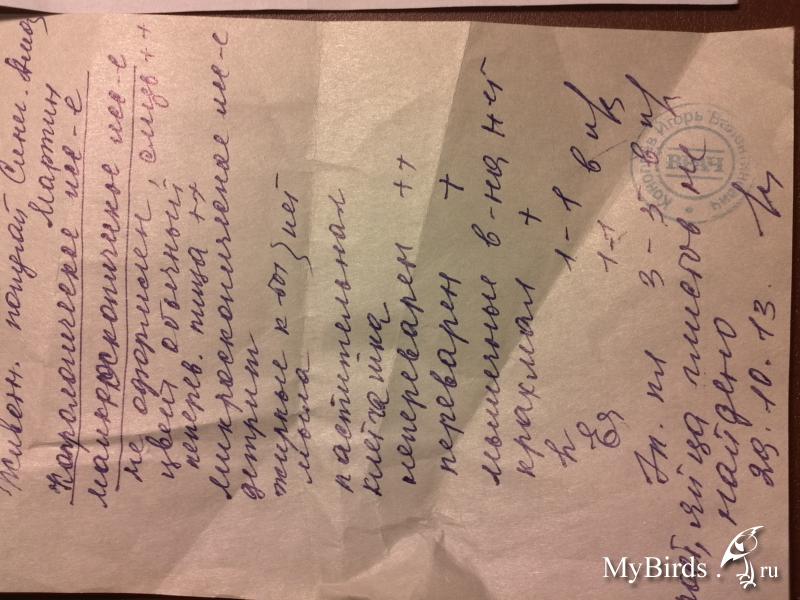 животн. попугай Синел. Амаз
Мартин
Копрологическое исс-е
макроскопическое исс-е
не оформлен, слизь ++
цвет обычный
неперев. пища ++
микроскопическое исс-е
детрит
жирные к-ты } нет
мыла
растительная
клетчатка
неперевареп ++
переварен +
мышечные в-на нет
крахмал +
L 1-1 в п/з
Er 1-1
Эп. пл 3-3 в п/з
яйца глистов не
найдено
29.10.13.
Игорь Валентинович
ВРАЧ
MyBirds.ru